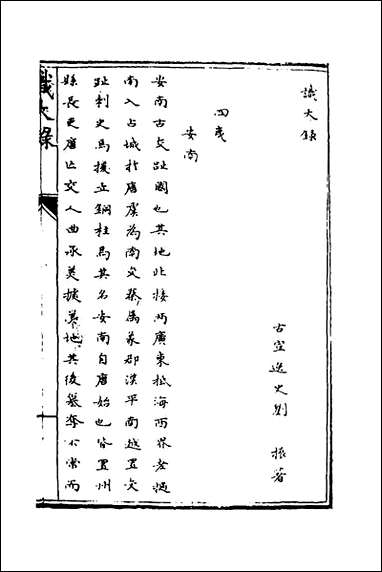 識大錄
古宣逸史劉　振著
四夷
安南
安南古交趾國也其地北接兩廣東抵海西界老撾
南入占城於唐虞為南交秦為象郡漢平南越置交
趾刺史馬援立銅柱焉其名安南自唐始也皆置州
縣長吏唐亡交人曲承美據其地其後簒奪不常而
識大錄